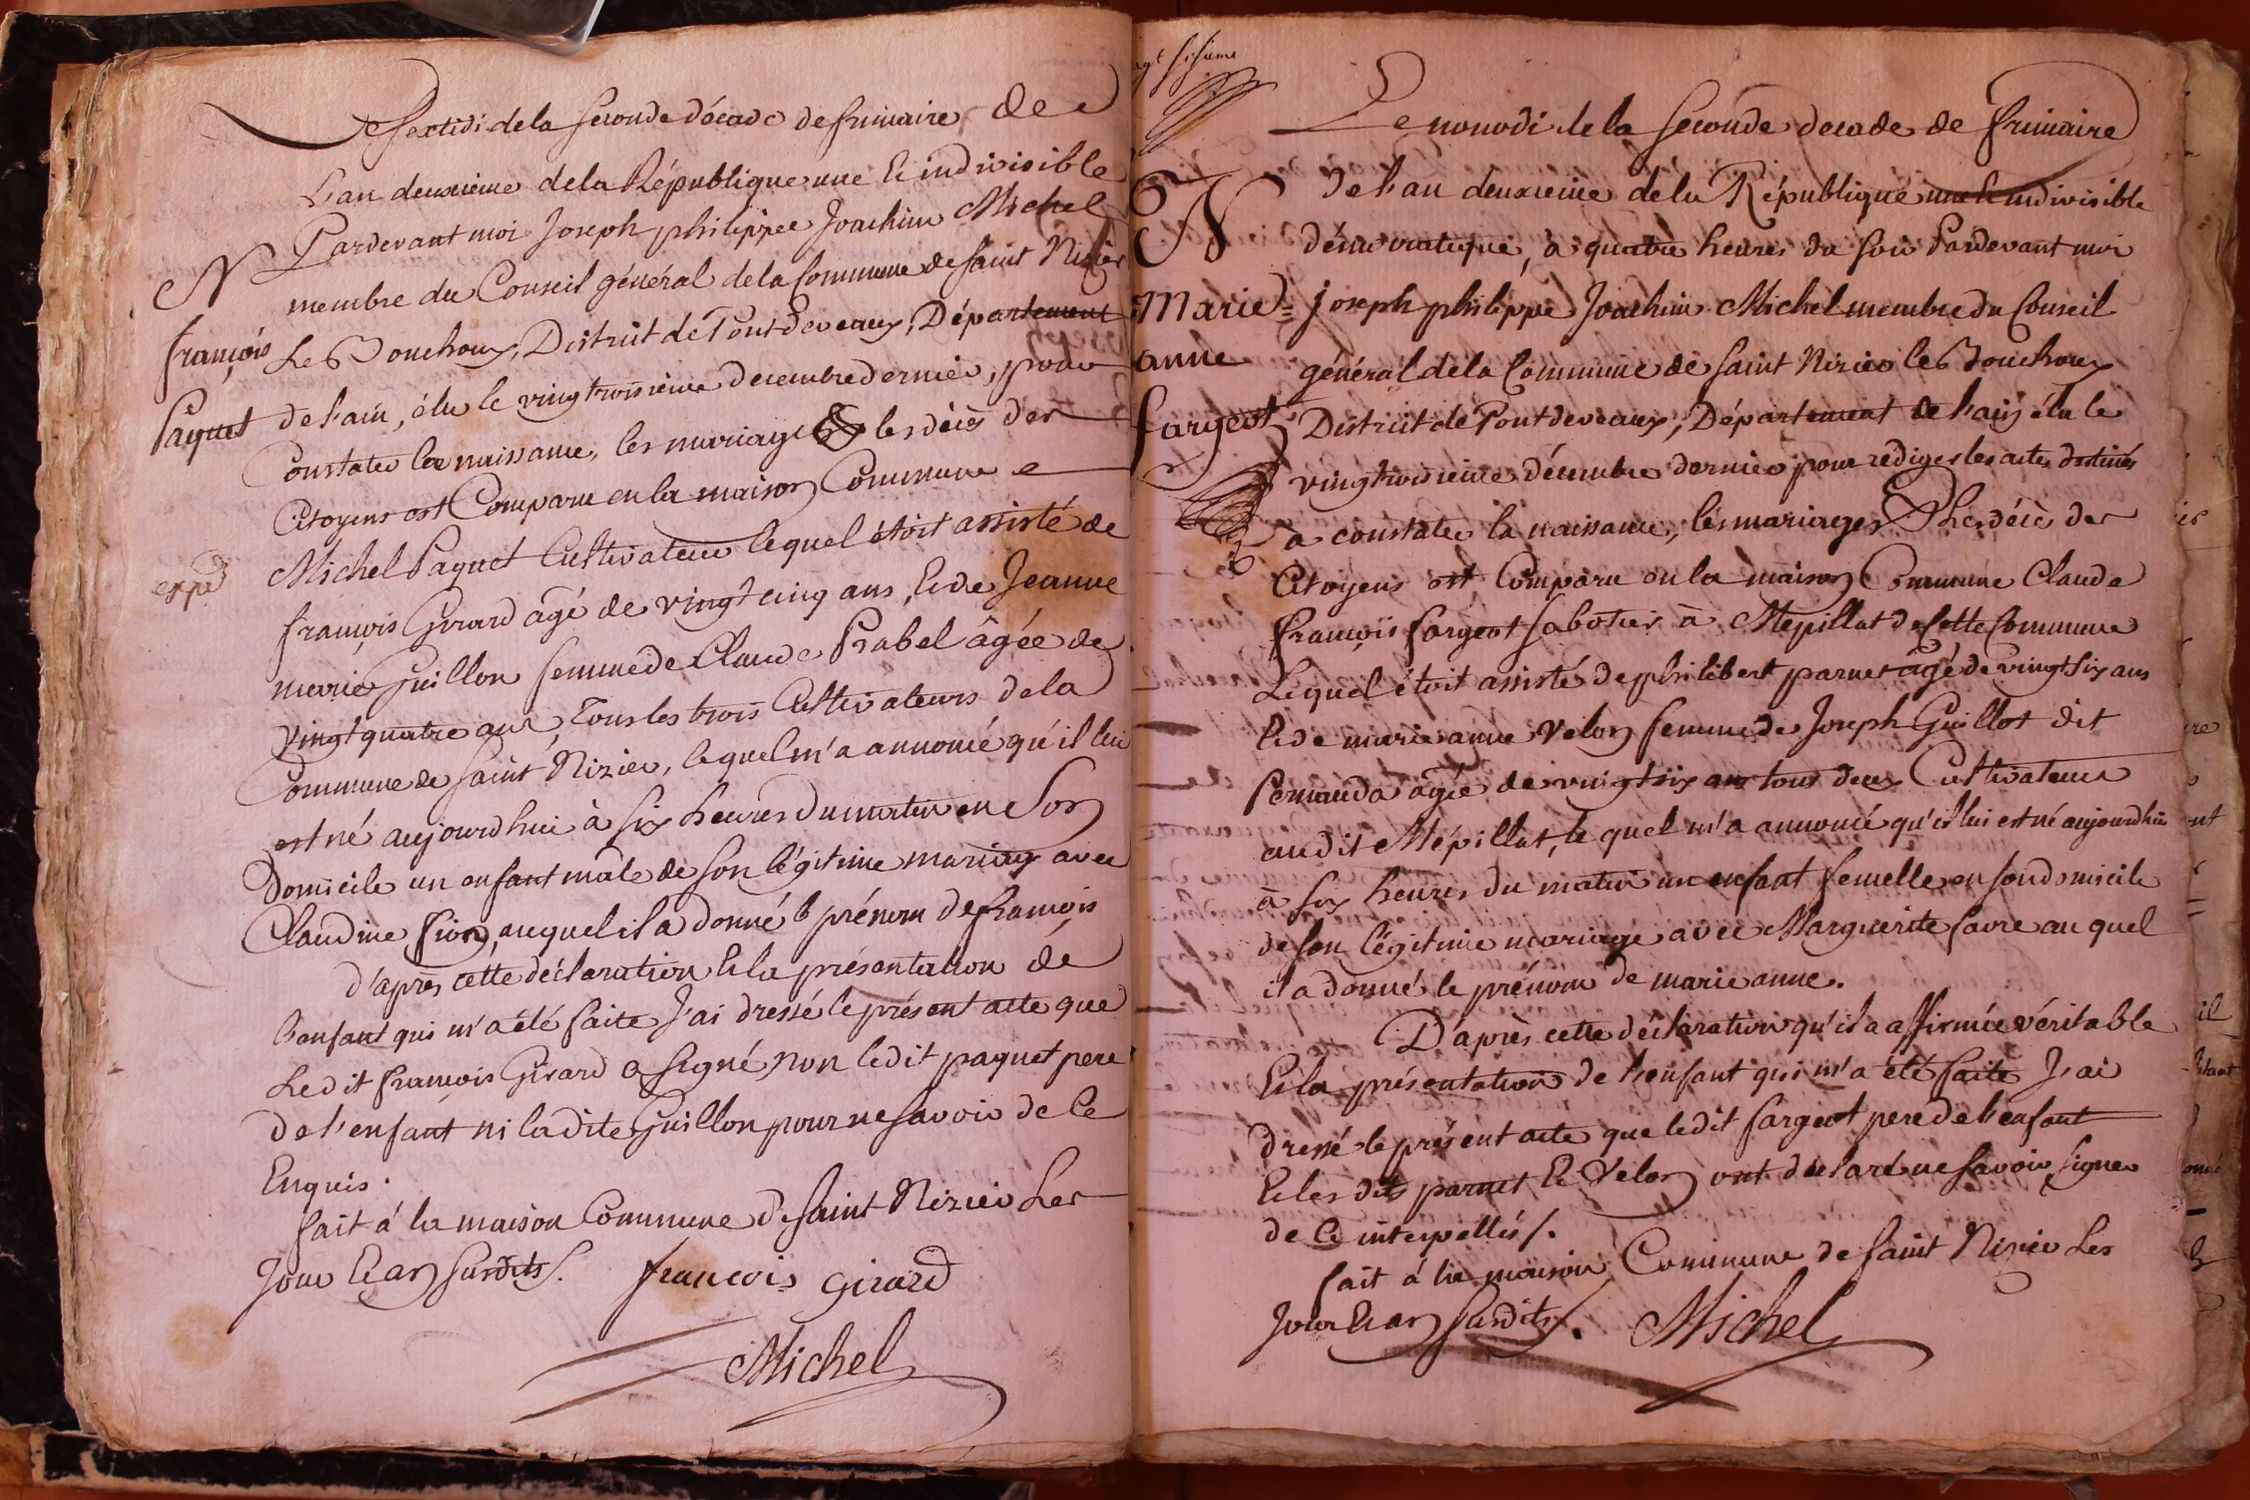 Le Sextidi de la seconde décade de frimaire de
L'an deuxieme de la République une Et indivisible
Pardevant moi Joseph philippe Joachim Michel
membre du Conseil général de la Commune de Saint Nizier
Le Bouchoux, District de Pontdevaux, Département
de l'ain, élu le vingt troisieme decembre dernier, pour
Constater la naissance, les mariages & les décès des
Citoyens est Comparu en la maison Commune
Michel Paquet Cultivateur lequel étoit assisté de
françois Girard agé de vingt cinq ans, Et de Jeanne
marie Guillon femme de Claude Prabel âgée de
vingt quatre ans, Tous les trois Cultivateurs de la
Commune de Saint Nizier, lequel m'a annoncé qu'il lui
est né aujourdhui à six heures du matin en Son
Domicile un enfant mâle de son légitime mariage avec
Claudine fion, auquel il a donné le prénom de françois
d'après cette déclaration Et la présentation de
L'enfant qui m'a été faite J'ai dressé le présent acte que
Ledit françois Girard a signé, non ledit paquet pere
de l'enfant ni ladite Guillon pour ne savoir de Ce
Enquis.
fait à la maison Commune de Saint Nizier Les
Jour Et an susdits.
francois girard
Michel
N
françois
Paquet
expd
Le nonodi de la seconde decade de frimaire
de l'an deuxieme de la République une Et indivisible
démocratique, à quatre heures du soir Pardevant moi
joseph philippe Joachim Michel membre du Conseil
général de la Commune de Saint Nizier le Bouchoux
District de Pontdevaux, Département de l'ain élu le
vingt troisieme décembre dernier pour rediger les actes destinés
à constater la naissance, les mariages & les décès des
Citoyens est Comparu en la maison Commune Claude
françois fargeot sabotier à Mépillat de Cette Commune
Lequel étoit assisté de philibert parnet agé de vingt six ans
Et de marie anne Velon femme de Joseph Guillot dit
Pemanda agée de vingt six ans tous deux Cultivateurs
audit Mépillat, lequel m'a annoncé qu'il lui est né aujourdhui
à six heures du matin un enfant femelle en son domicile
de son légitime mariage avec Marguerite favre au quel
il a donné le prénom de marie anne.
D'après cette déclaration qu'il a affirmée véritable
Et la présentation de l'enfant qui m'a été faite J'ai
dressé le présent acte que ledit fargeot pere de l'enfant
Et les dits parnet Et Velon ont déclaré ne savoir signer
de Ce interpellés.
fait à la maison Commune de Saint Nizier Les
Jour Et an susdits.
Michel
N
Marie=
anne
fargeot